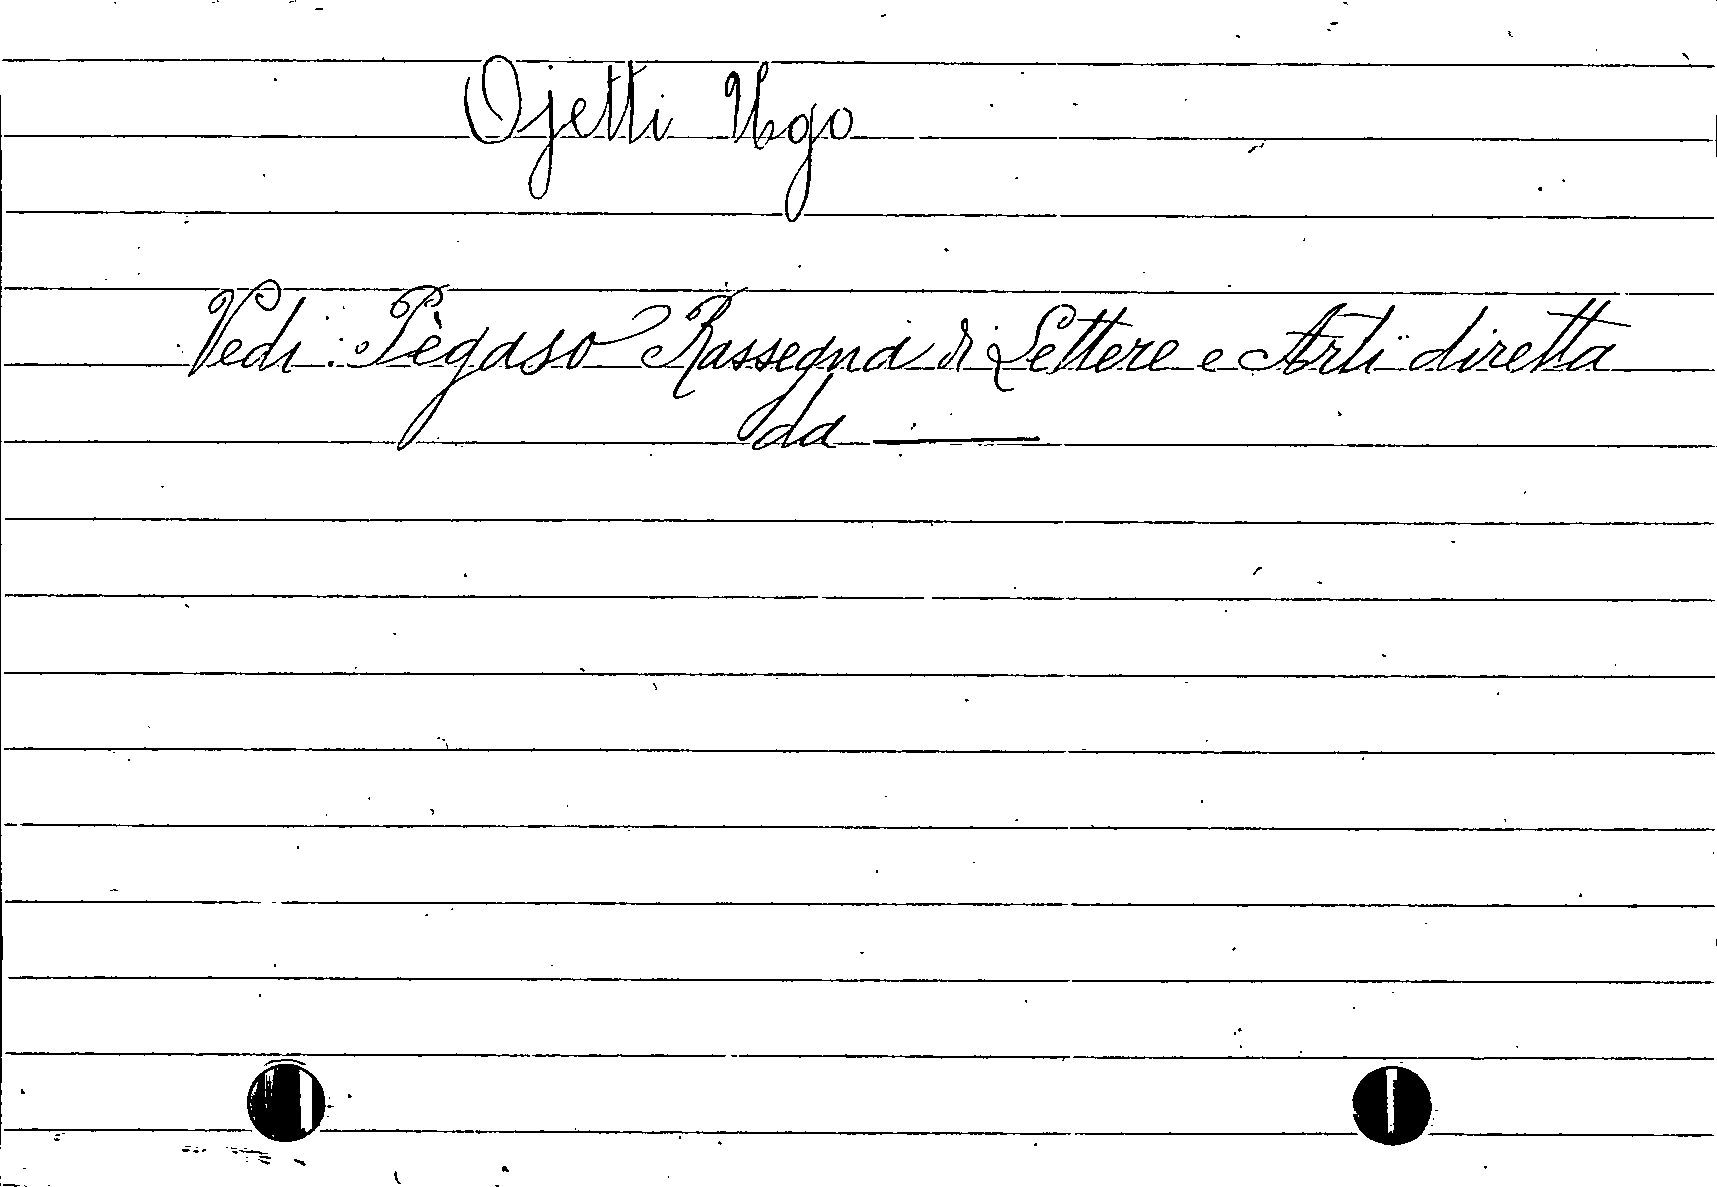 Ojetti Ugo
Vedi: Pègaso Rassegna di Lettere e Arti diretta
da ———